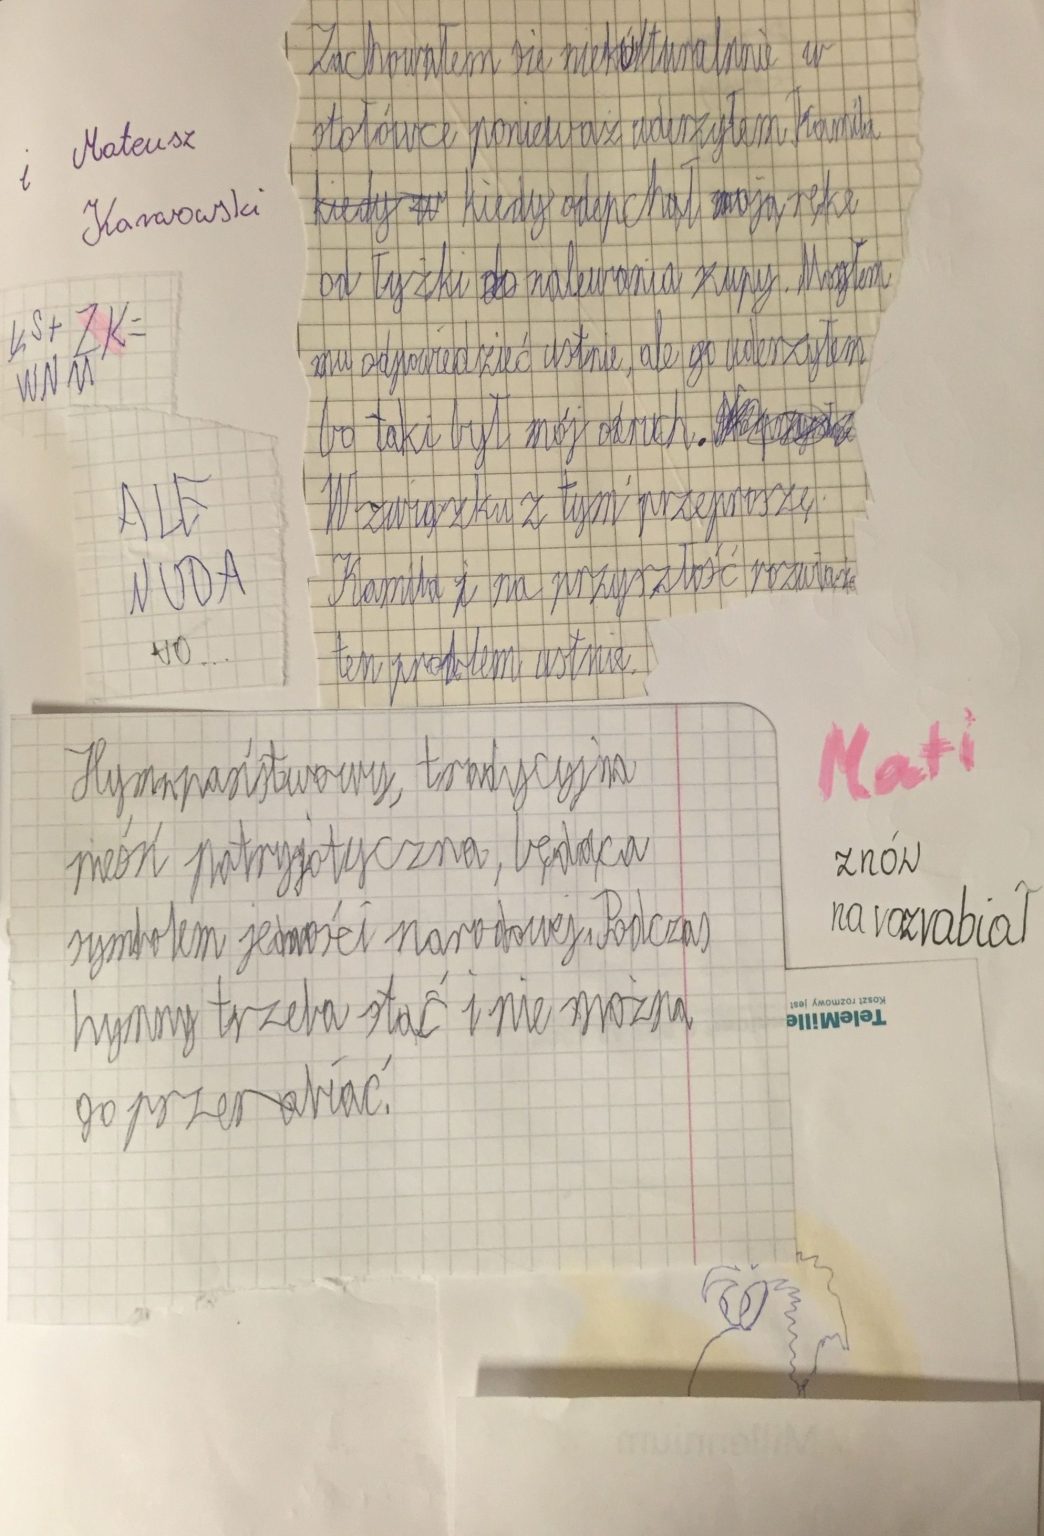 i Mateusz
Karwowski
KS+ZK=
WNM
ALE
NUDA
NO...
Zachowałem się niekulturalnie w
stołówce ponieważ uderzyłem Kamila
kiedy odepchał moją rękę
od łyżki do nalewania zupy. Mogłem
mu odpowiedzieć ustnie, ale go uderzyłem
bo taki był mój odruch.
W związku z tym przeproszę
Kamila i na przyszłość rozwiążę
ten problem ustnie.
Hymn państwowy, tradycyjna
pieśń patryjotyczna, będąca
symbolem jedności narodowej. Podczas
hymny trzeba stać i nie można
go przerabiać.
Mati
znów
narozrabiał
Koszt rozmowy jest
TeleMille
Millennium